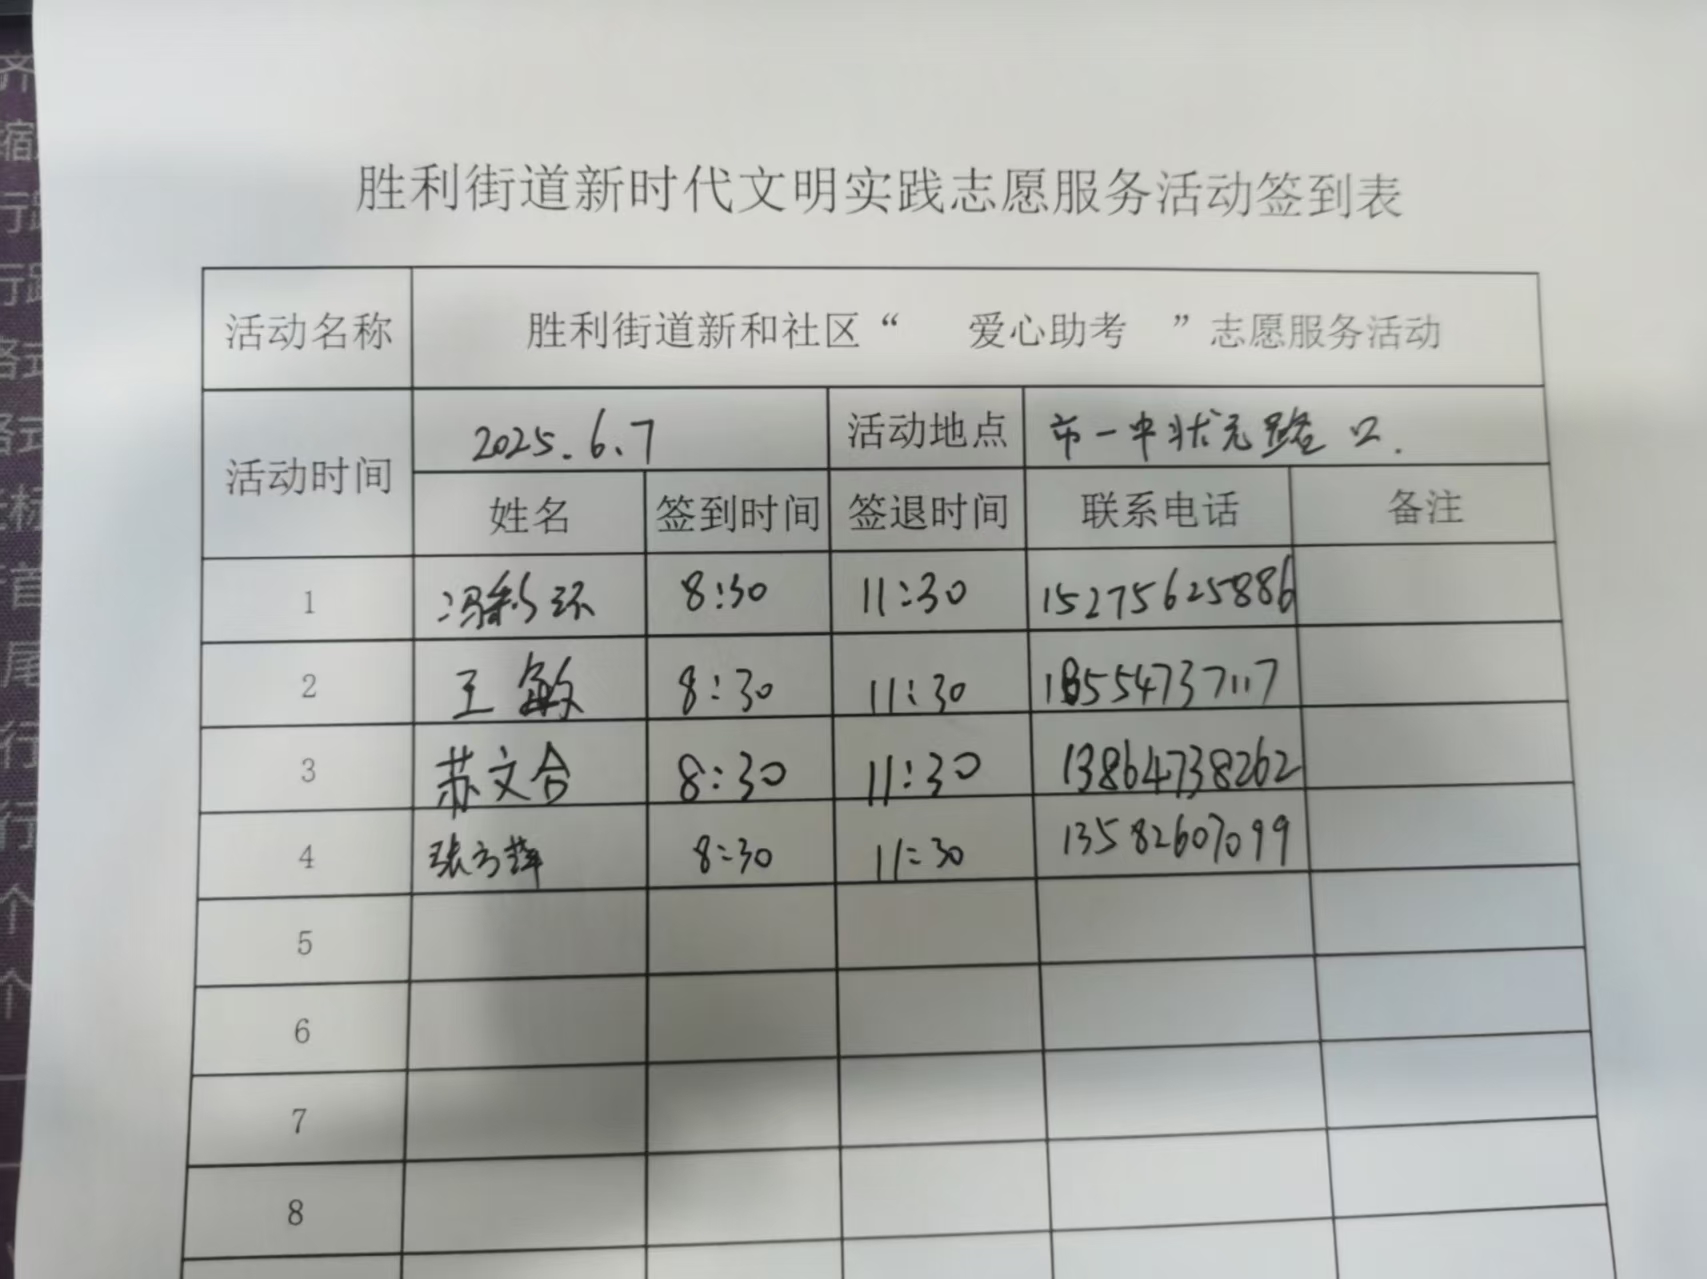 胜利街道新时代文明实践志愿服务活动签到表
活动名称 胜利街道新和社区“ 爱心助考 ”志愿服务活动
活动时间 2025.6.7 活动地点 市一中状元路口.
姓名 签到时间 签退时间 联系电话 备注
1 冯彩环 8:30 11:30 15275625886
2 王敏 8:30 11:30 18554737117
3 苏文合 8:30 11:30 13864738262
4 张方萍 8:30 11:30 13582607099
5
6
7
8
齐
缩
行距
行距
格式
格式
标
首
尾
行
行
个
个